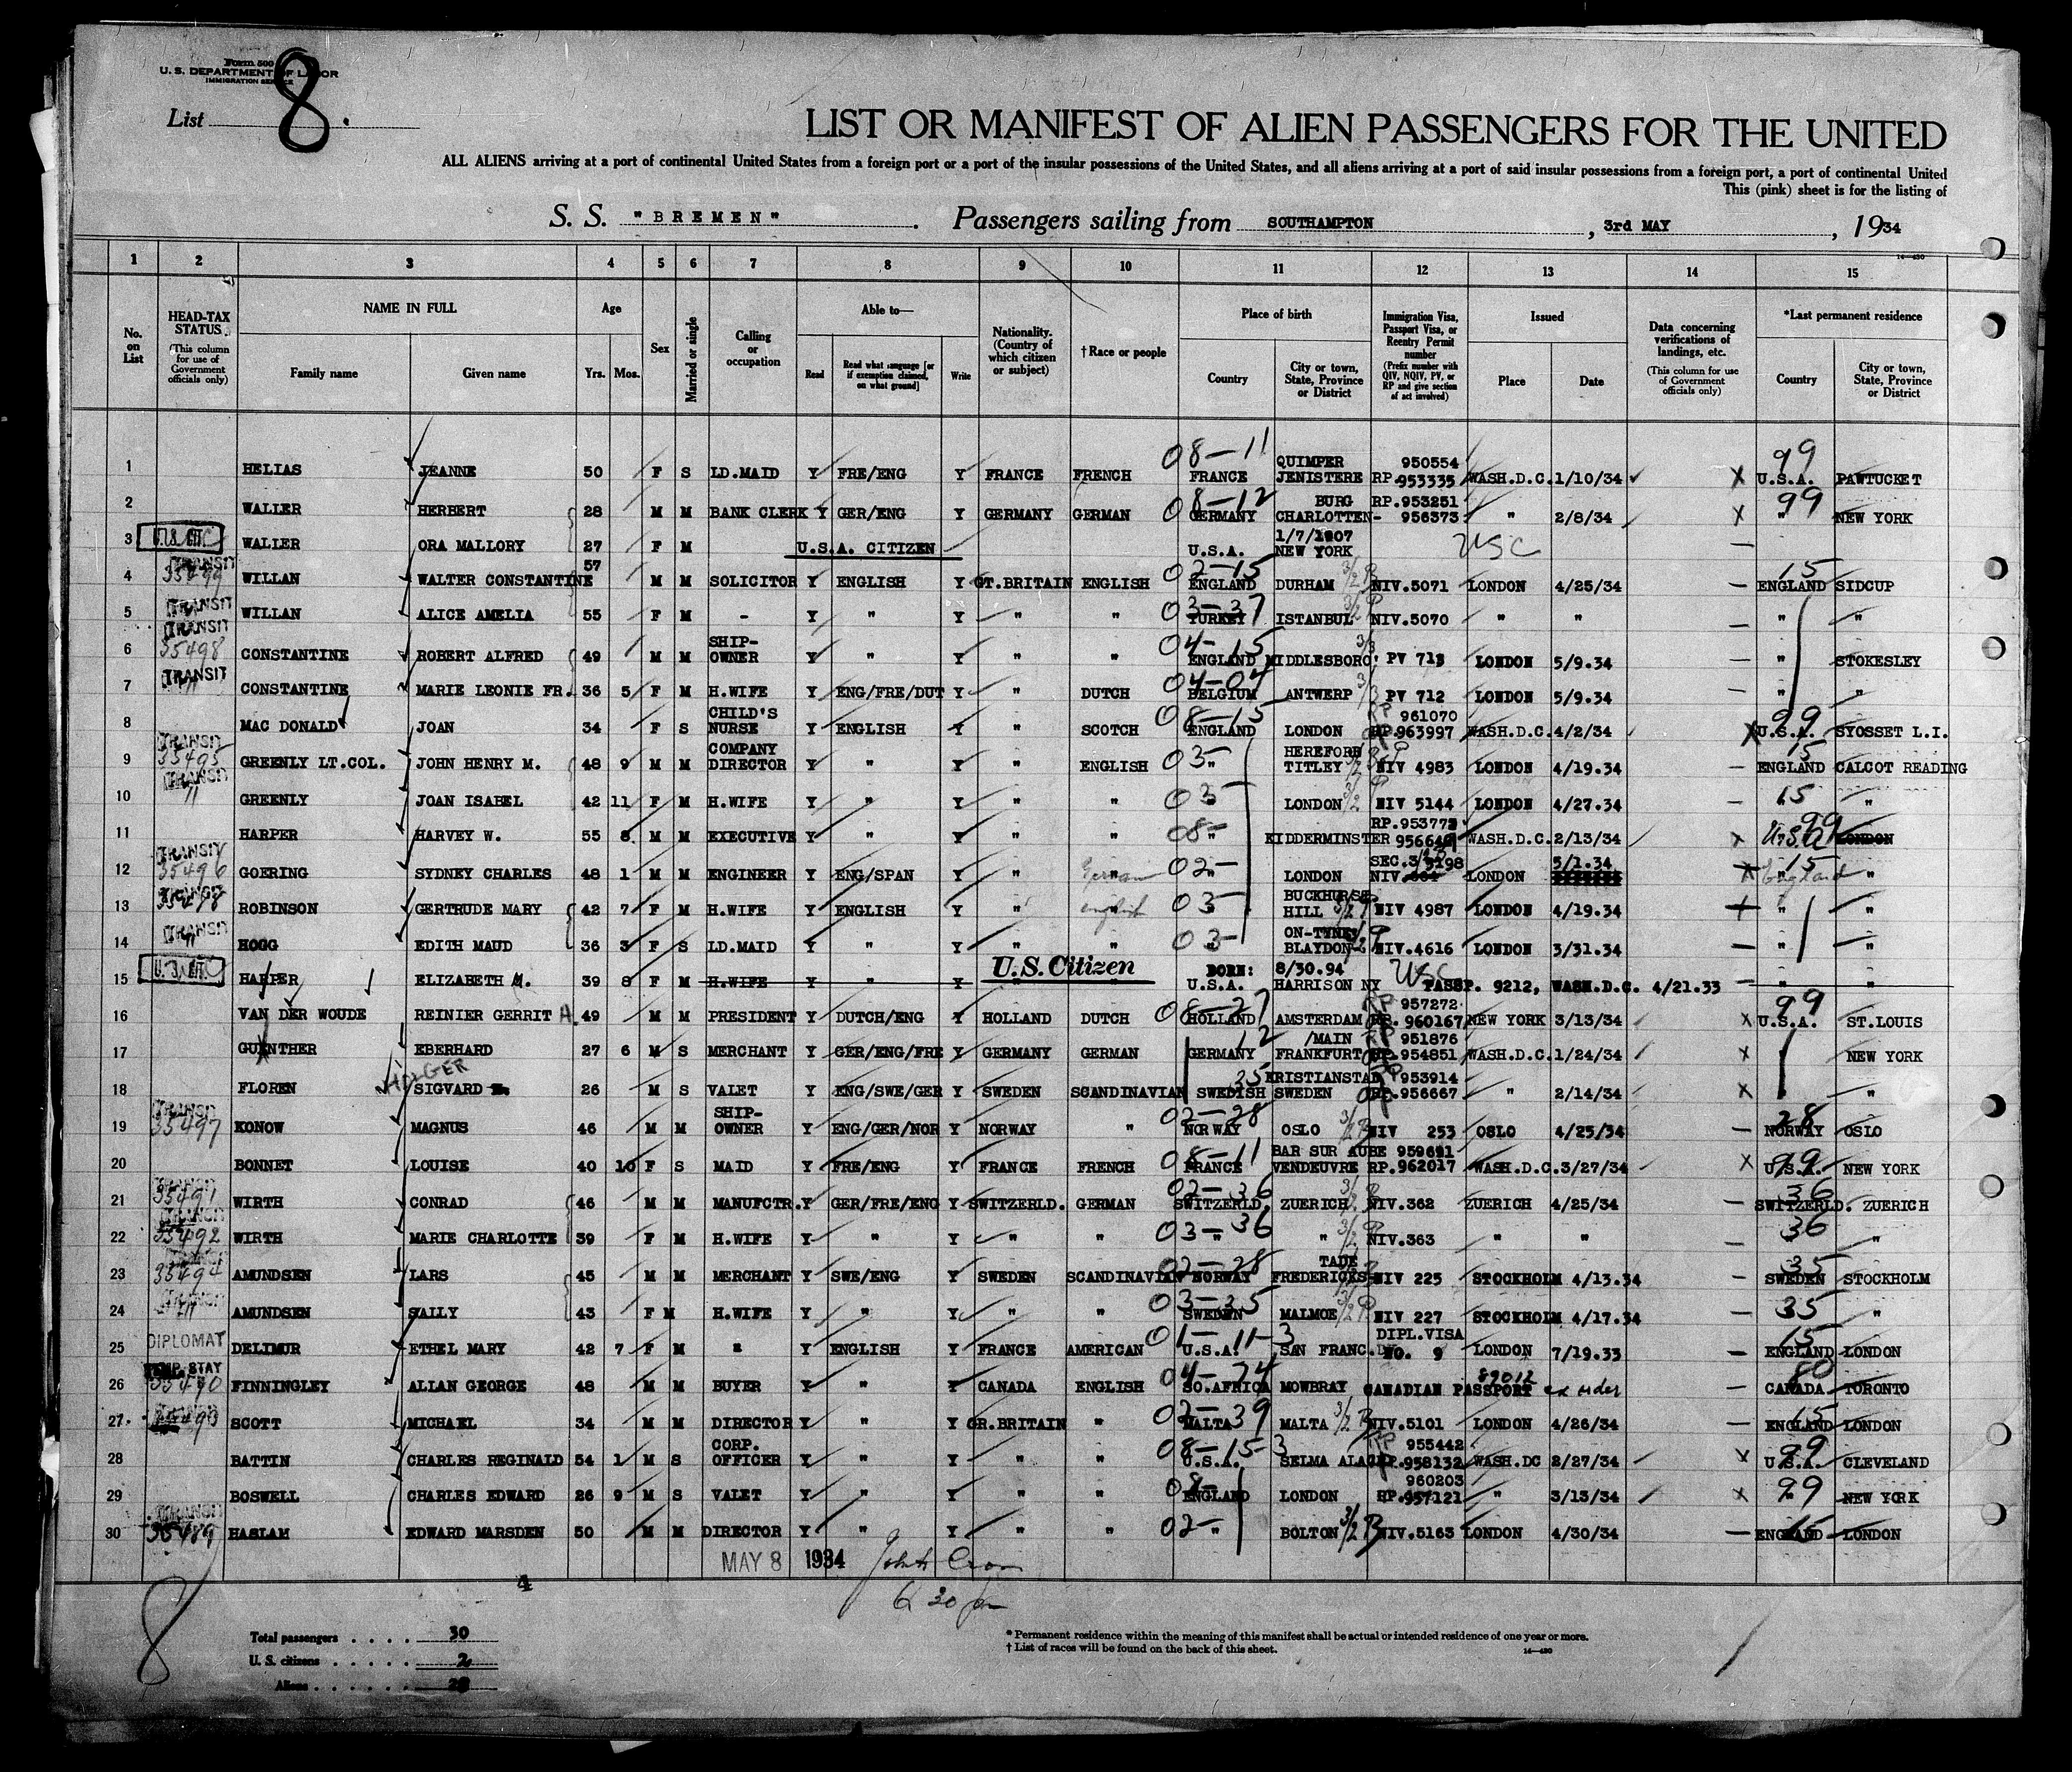 Form 500
U. S. DEPARTMENT OF LABOR
IMMIGRATION SERVICE
List 8.
LIST OR MANIFEST OF ALIEN PASSENGERS FOR THE UNITED
ALL ALIENS arriving at a port of continental United States from a foreign port or a port of the insular possessions of the United States, and all aliens arriving at a port of said insular possessions from a foreign port, a port of continental United
This (pink) sheet is for the listing of
S. S. "BREMEN" . Passengers sailing from SOUTHAMPTON , 3rd MAY , 1934
14—430
1 2 3 4 5 6 7 8 9 10 11 12 13 14 15
No. on List
HEAD-TAX STATUS (This column for use of Government officials only)
NAME IN FULL Family name Given name
Age Yrs. Mos.
Sex
Married or single
Calling or occupation
Able to— Read Read what language [or if exemption claimed, on what ground] Write
Nationality. (Country of which citizen or subject)
†Race or people
Place of birth Country City or town, State, Province or District
Immigration Visa, Passport Visa, or Reentry Permit number (Prefix number with QIV, NQIV, PV, or RP and give section of act involved)
Issued Place Date
Data concerning verifications of landings, etc. (This column for use of Government officials only)
*Last permanent residence Country City or town, State, Province or District
1 HELIAS JEANNE 50 F S LD.MAID Y FRE/ENG Y FRANCE FRENCH 08-11 FRANCE QUIMPER JENISTERE 950554 RP.953335 WASH.D.C. 1/10/34 X 99 U.S.A. PAWTUCKET
2 WALLER HERBERT 28 M M BANK CLERK Y GER/ENG Y GERMANY GERMAN 08-12 GERMANY BURG CHARLOTTEN- RP.953251 956373 " 2/8/34 X 99 " NEW YORK
3 WALLER ORA MALLORY 27 F M U.S.A. CITIZEN U.S.A. 1/7/1907 NEW YORK USC —
4 TRANSIT 35499 WILLAN WALTER CONSTANTINE 57 M M SOLICITOR Y ENGLISH Y GT.BRITAIN ENGLISH 02-15 ENGLAND DURHAM 3/2 P NIV.5071 LONDON 4/25/34 — 15 ENGLAND SIDCUP
5 TRANSIT WILLAN ALICE AMELIA 55 F M - Y " Y " " 03-37 TURKEY ISTANBUL 3/2 P NIV.5070 " " — " "
6 TRANSIT 35498 CONSTANTINE ROBERT ALFRED 49 M M SHIP-OWNER Y " Y " " 04-15 ENGLAND MIDDLESBORO. 3/3 PV 713 LONDON 5/9.34 — " STOKESLEY
7 TRANSIT " CONSTANTINE MARIE LEONIE FR. 36 5 F M H.WIFE Y ENG/FRE/DUT Y " DUTCH 04-04 BELGIUM ANTWERP 3/3 PV 712 LONDON 5/9.34 — " "
8 MAC DONALD JOAN 34 F S CHILD'S NURSE Y ENGLISH Y " SCOTCH 08-15 ENGLAND LONDON 961070 RP.963997 WASH.D.C. 4/2/34 X 99 U.S.A. SYOSSET L.I.
9 TRANSIT 35495 GREENLY LT.COL. JOHN HENRY M. 48 9 M M COMPANY DIRECTOR Y " Y " ENGLISH 03- " HEREFORD TITLEY 3/2 P NIV 4983 LONDON 4/19.34 — 15 ENGLAND CALCOT READING
10 TRANSIT " GREENLY JOAN ISABEL 42 11 F M H.WIFE Y " Y " " 03- LONDON 3/2 P NIV 5144 LONDON 4/27.34 — 15 "
11 HARPER HARVEY W. 55 8 M M EXECUTIVE Y " Y " " 08- " KIDDERMINSTER RP.953773 WASH.D.C. 2/13/34 X 99 U.S.A. LONDON
12 TRANSIT 35496 GOERING SYDNEY CHARLES 48 1 M M ENGINEER Y ENG/SPAN Y " German 02- " LONDON SEC.3/2 5198 NIV. LONDON 5/1.34 X 15 England "
13 TRANSIT ROBINSON GERTRUDE MARY 42 7 F M H.WIFE Y ENGLISH Y " english 03- BUCKHURST HILL 3/2 P NIV 4987 LONDON 4/19.34 " "
14 TRANSIT " HOGG EDITH MAUD 36 3 F S LD.MAID Y " Y " " 03- ON-TYNE BLAYDON- 3/2 P NIV.4616 LONDON 3/31.34 — " "
15 U.S. CIT. HARPER ELIZABETH M. 39 8 F M H.WIFE Y " Y U.S. Citizen BORN: U.S.A. 8/30.94 HARRISON NY USC PASSP. 9212, WASH.D.C. 4/21.33 — " "
16 VAN DER WOUDE REINIER GERRIT A. 49 M M PRESIDENT Y DUTCH/ENG Y HOLLAND DUTCH 08-27 HOLLAND AMSTERDAM 957272 RP. 960167 NEW YORK 3/13/34 X 99 U.S.A. ST.LOUIS
17 GUENTHER EBERHARD 27 6 M S MERCHANT Y GER/ENG/FRE Y GERMANY GERMAN 12 GERMANY /MAIN FRANKFURT 951876 RP.954851 WASH.D.C. 1/24/34 X NEW YORK
18 FLOREN SIGVARD HOLGER 26 M S VALET Y ENG/SWE/GER Y SWEDEN SCANDINAVIAN 35 SWEDISH KRISTIANSTAD SWEDEN 953914 RP.956667 " 2/14/34 X "
19 TRANSIT 35497 KONOW MAGNUS 46 M M SHIP-OWNER Y ENG/GER/NOR Y NORWAY " 02-28 NORWAY OSLO 3/2 P NIV 253 OSLO 4/25/34 — 28 NORWAY OSLO
20 BONNET LOUISE 40 10 F S MAID Y FRE/ENG Y FRANCE FRENCH 08-11 FRANCE BAR SUR AUBE VENDEUVRE 959691 RP.962017 WASH.D.C. 3/27/34 X 99 U.S.A. NEW YORK
21 TRANSIT 35491 WIRTH CONRAD 46 M M MANUFCTR. Y GER/FRE/ENG Y SWITZERLD. GERMAN 02-36 SWITZERLD. ZUERICH 3/2 P NIV.362 ZUERICH 4/25/34 — 36 SWITZERLD. ZUERICH
22 TRANSIT 35492 WIRTH MARIE CHARLOTTE 39 F M H.WIFE Y " Y " " 03-36 " " 3/2 P NIV.363 " " — 36 "
23 TRANSIT 35494 AMUNDSEN LARS 45 M M MERCHANT Y SWE/ENG Y SWEDEN SCANDINAVIAN 02-28 NORWAY TADE FREDERICKS- NIV 225 STOCKHOLM 4/13.34 — 35 SWEDEN STOCKHOLM
24 TRANSIT " AMUNDSEN SAILY 43 F M H.WIFE Y " Y " " 03-35 SWEDEN MALMOE 3/2 P NIV 227 STOCKHOLM 4/17.34 — 35 "
25 DIPLOMAT DELIMUR ETHEL MARY 42 7 F M " Y ENGLISH Y FRANCE AMERICAN 01-11-3 U.S.A. SAN FRANC. DIPL.VISA NO. 9 LONDON 7/19.33 — 15 ENGLAND LONDON
26 TEMP. STAY 35490 FINNINGLEY ALLAN GEORGE 48 M M BUYER Y " Y CANADA ENGLISH 04-74 SO.AFRICA MOWBRAY CANADIAN PASSPORT 89012 ex order — 80 CANADA TORONTO
27 35493 SCOTT MICHAEL 34 M M DIRECTOR Y " Y GR.BRITAIN " 02-39 MALTA MALTA 3/2 P NIV.5101 LONDON 4/26/34 — 15 ENGLAND LONDON
28 BATTIN CHARLES REGINALD 54 1 M S CORP. OFFICER Y " Y " " 08-15-3 U.S.A. SELMA ALA. 955442 RP.958132 WASH.DC 2/27/34 X 99 U.S.A. CLEVELAND
29 BOSWELL CHARLES EDWARD 26 9 M S VALET Y " Y " " 08- ENGLAND LONDON 960203 RP.957121 " 3/13/34 X 99 " NEW YORK
30 TRANSIT 35489 HASLAM EDWARD MARSDEN 50 M M DIRECTOR Y " Y " " 02- " BOLTON 3/2 P NIV.5163 LONDON 4/30/34 — 15 ENGLAND LONDON
MAY 8 1934
6 30 pm
4
8
Total passengers . . . . 30
U. S. citizens . . . . . 2
Aliens . . . . . . 28
* Permanent residence within the meaning of this manifest shall be actual or intended residence of one year or more.
† List of races will be found on the back of this sheet.
14—430